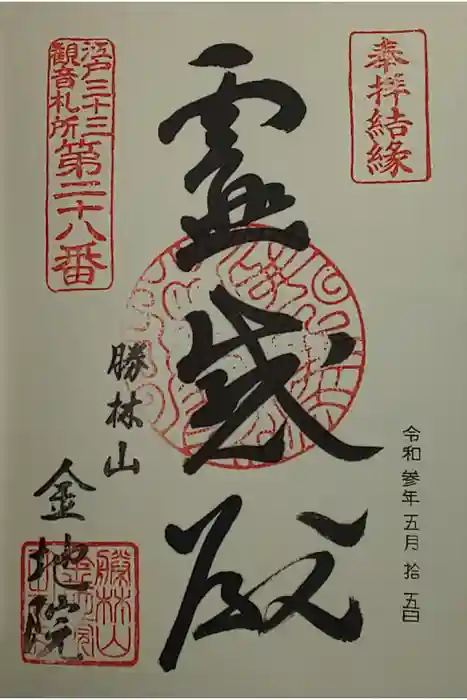 奉拝結縁
令和参年五月拾五日
霊感殿
江戸三十三
観音札所
第二十八番
勝林山
金地院
勝林山